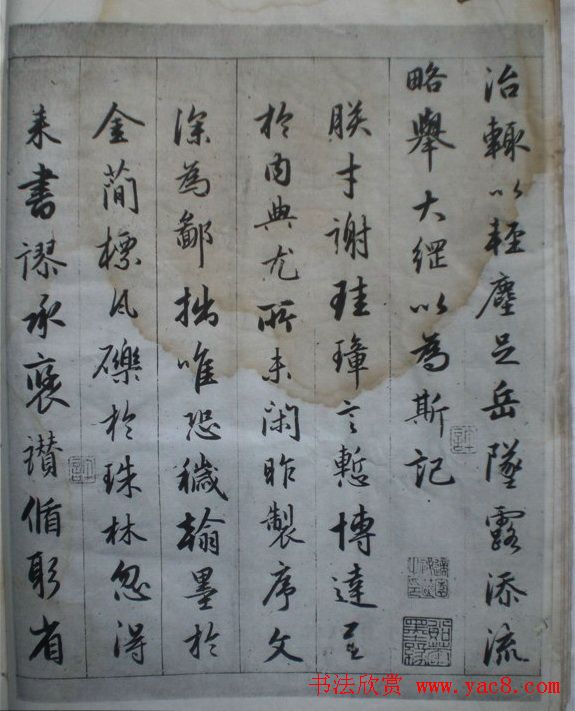 治輙以輕塵足岳墜露添流
略舉大綱以為斯記
朕才謝珪璋言慙博達至
於内典尤所未閑昨製序文
深為鄙拙唯恐穢翰墨於
金簡標瓦礫於珠林忽得
来書謬承褒讃循躬省
书法欣赏 www.yac8.com